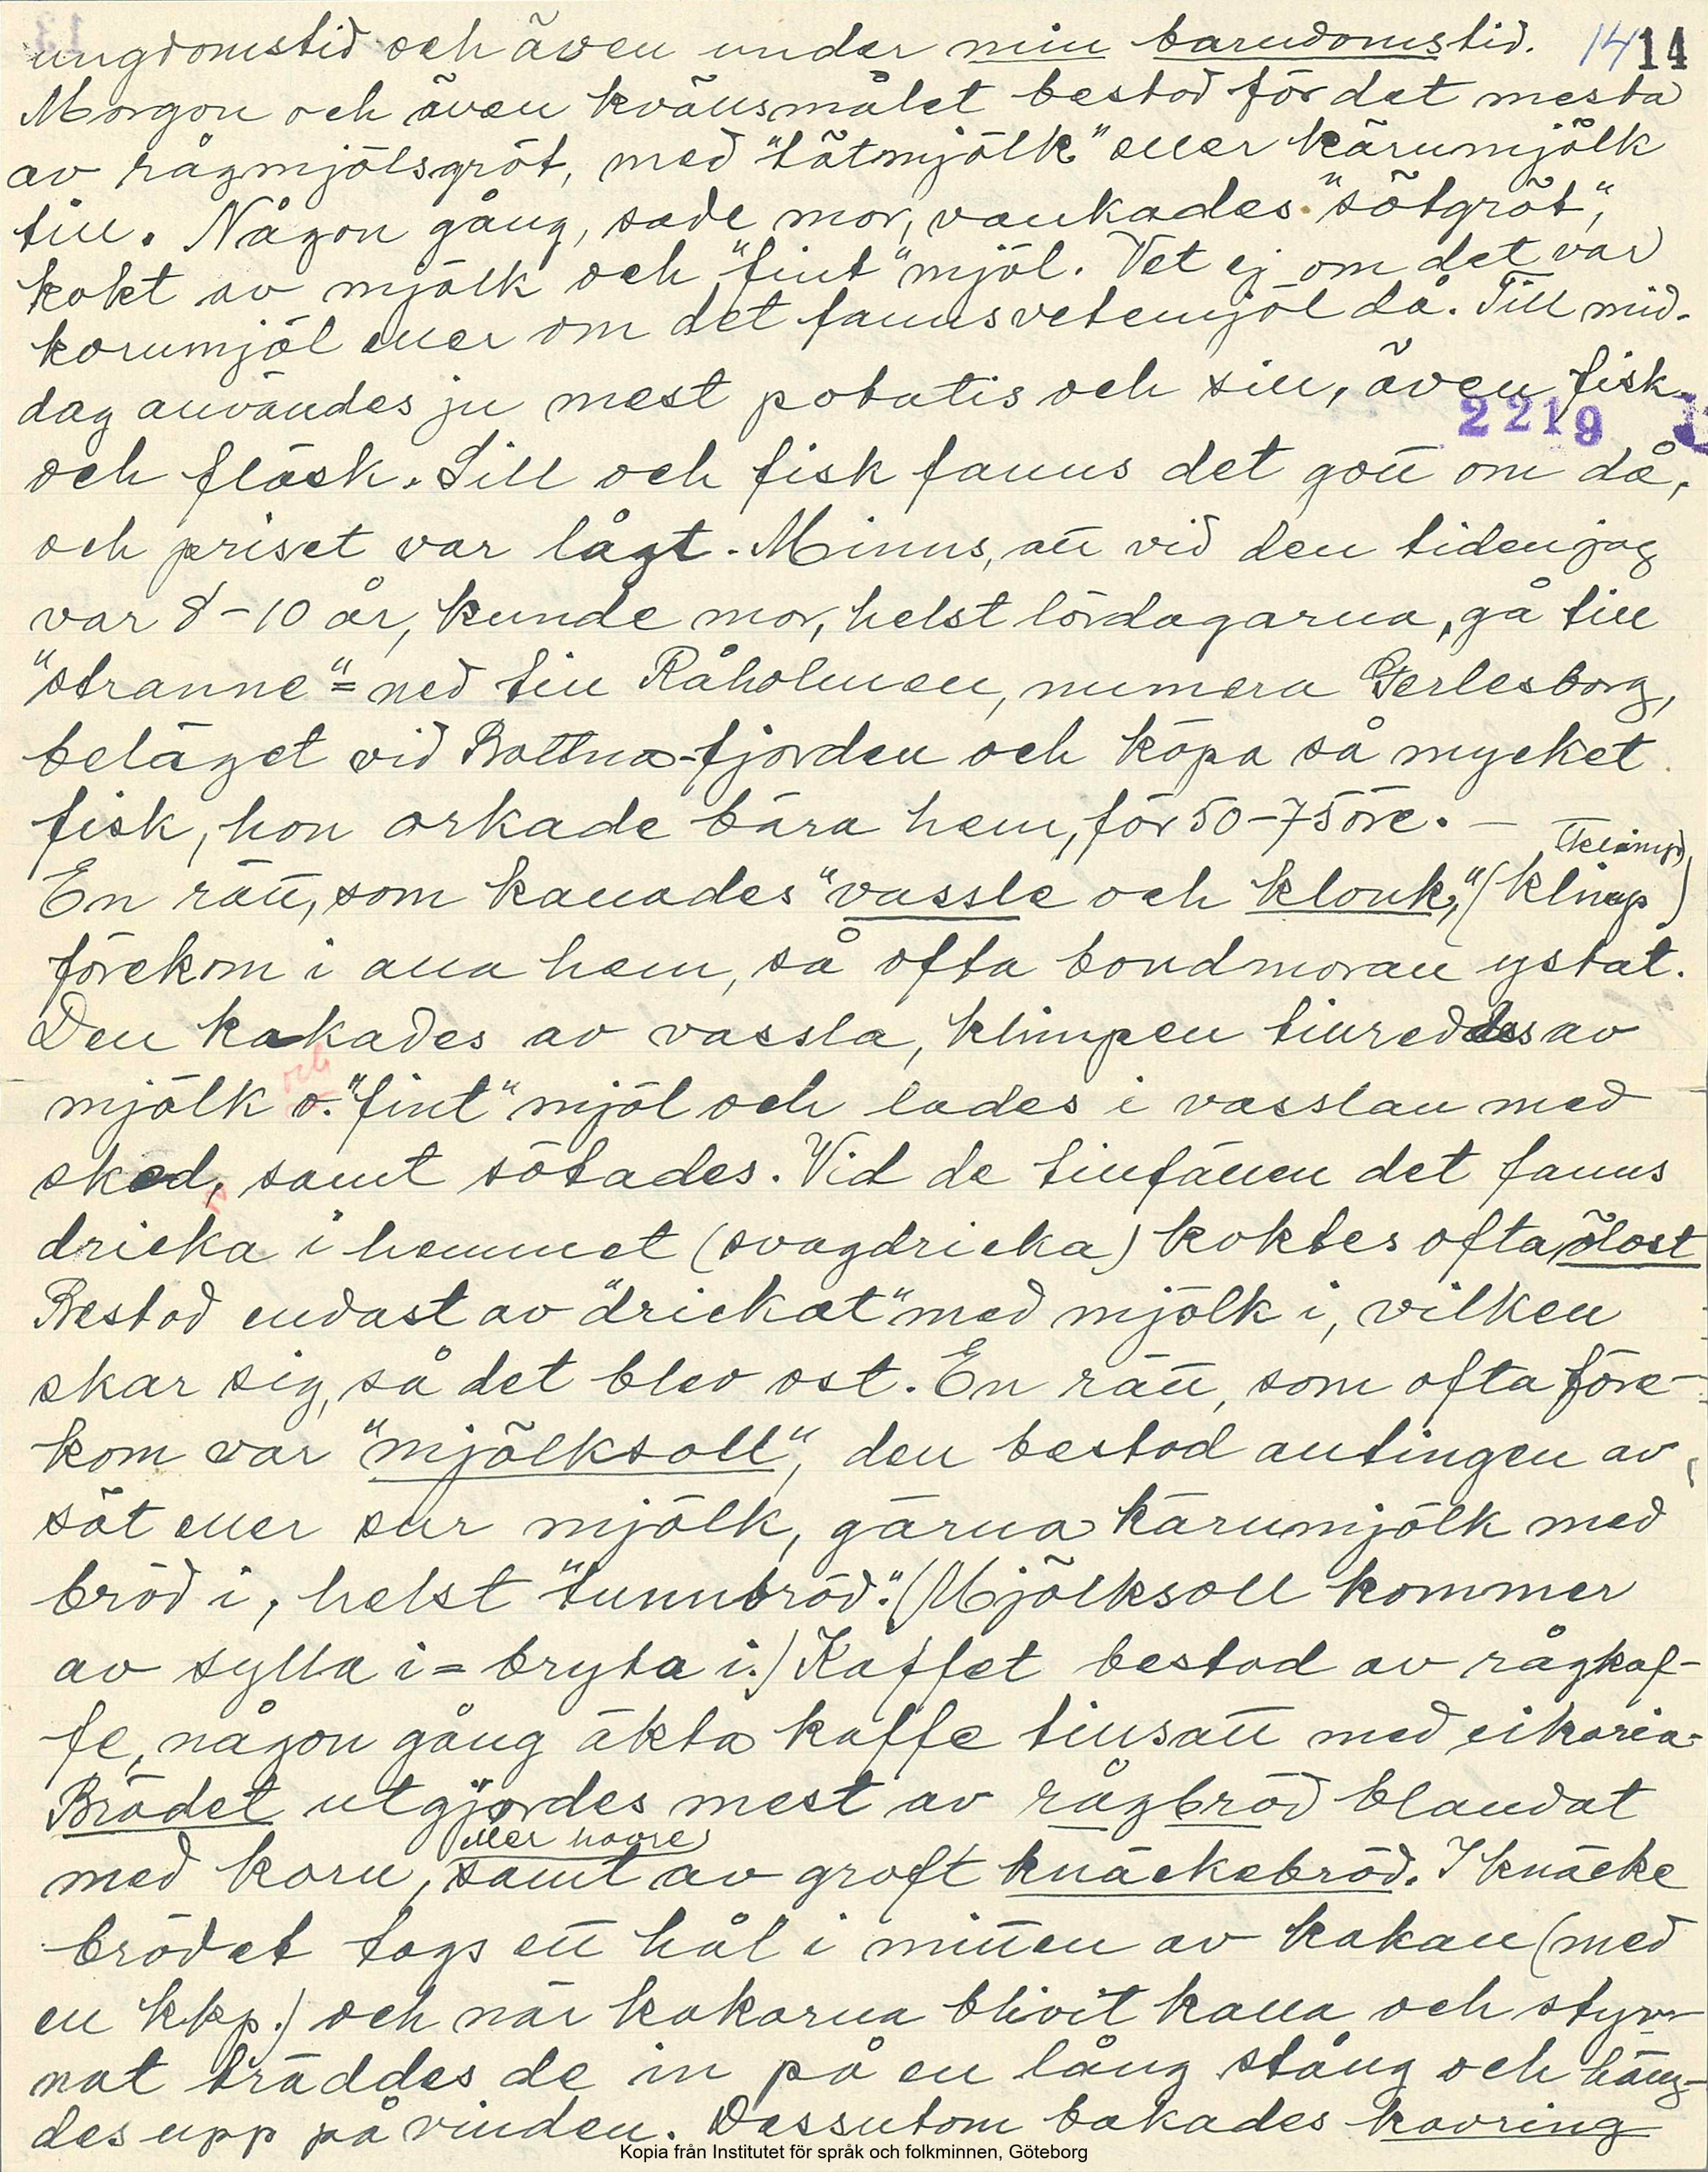 ungdomstid och även under min barndomstid. 14 14
Morgon och även kvällsmålet bestod för det mesta
av rågmjölsgröt, med "tätmjölk" eller kärnmjölk
till. Någon gång, sade mor, vankades "sötgröt",
kokt av mjölk och "fint" mjöl. Vet ej om det var
kornmjöl eller om det fanns vetemjöl då. Till mid-
dag användes ju mest potatis och sill, även fisk
2219
och fläsk. Sill och fisk fanns det gott om då,
och priset var lågt. Minns, att vid den tiden jag
var 8-10 år, kunde mor, helst lördagarna, gå till
"stranne" = ned till Råholmen, numera Gerlesborg,
beläget vid Bottna-fjorden och köpa så mycket
fisk, hon orkade bära hem, för 50-75 öre. —
En rätt, som kallades "vassle och klonk", (klimp)
förekom i alla hem, så ofta bondmoran ystat.
Den kokades av vassla, klimpen tillreddes av
mjölk o. "fint" mjöl och lades i vasslan med
och
sked, samt sötades. Vid de tillfällen det fanns
dricka i hemmet (svagdricka) koktes ofta ölost
Bestod endast av "drickat" med mjölk i, vilken
skar sig, så det blev ost. En rätt, som ofta före-
kom var "mjölksoll", den bestod antingen av
söt eller sur mjölk, gärna kärnmjölk med
bröd i, helst "tunnbröd." (Mjölksoll kommer
av sylla i = bryta i.) Kaffet bestod av rågkaf-
fe, någon gång äkta kaffe tillsatt med cikoria.
Brödet utgjordes mest av rågbröd blandat
eller havre
med korn, samt av groft knäckebröd. I knäcke
brödet togs ett hål i mitten av kakan (med
en kkp.) och när kakorna blivit kalla och styv-
nat träddes de in på en lång stång och häng-
des upp på vinden. Dessutom bakades kavring
Kopia från Institutet för språk och folkminnen, Göteborg